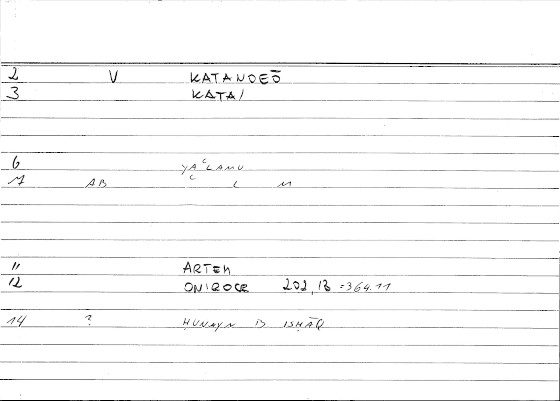 2 V KATANOEŌ
3 KATA/
6 YAʿLAMU
7 AB L M
11 ARTEM
12 ONIROCR 202,13 =364.11
14 ? ḤUNAYN B ISḤĀQ